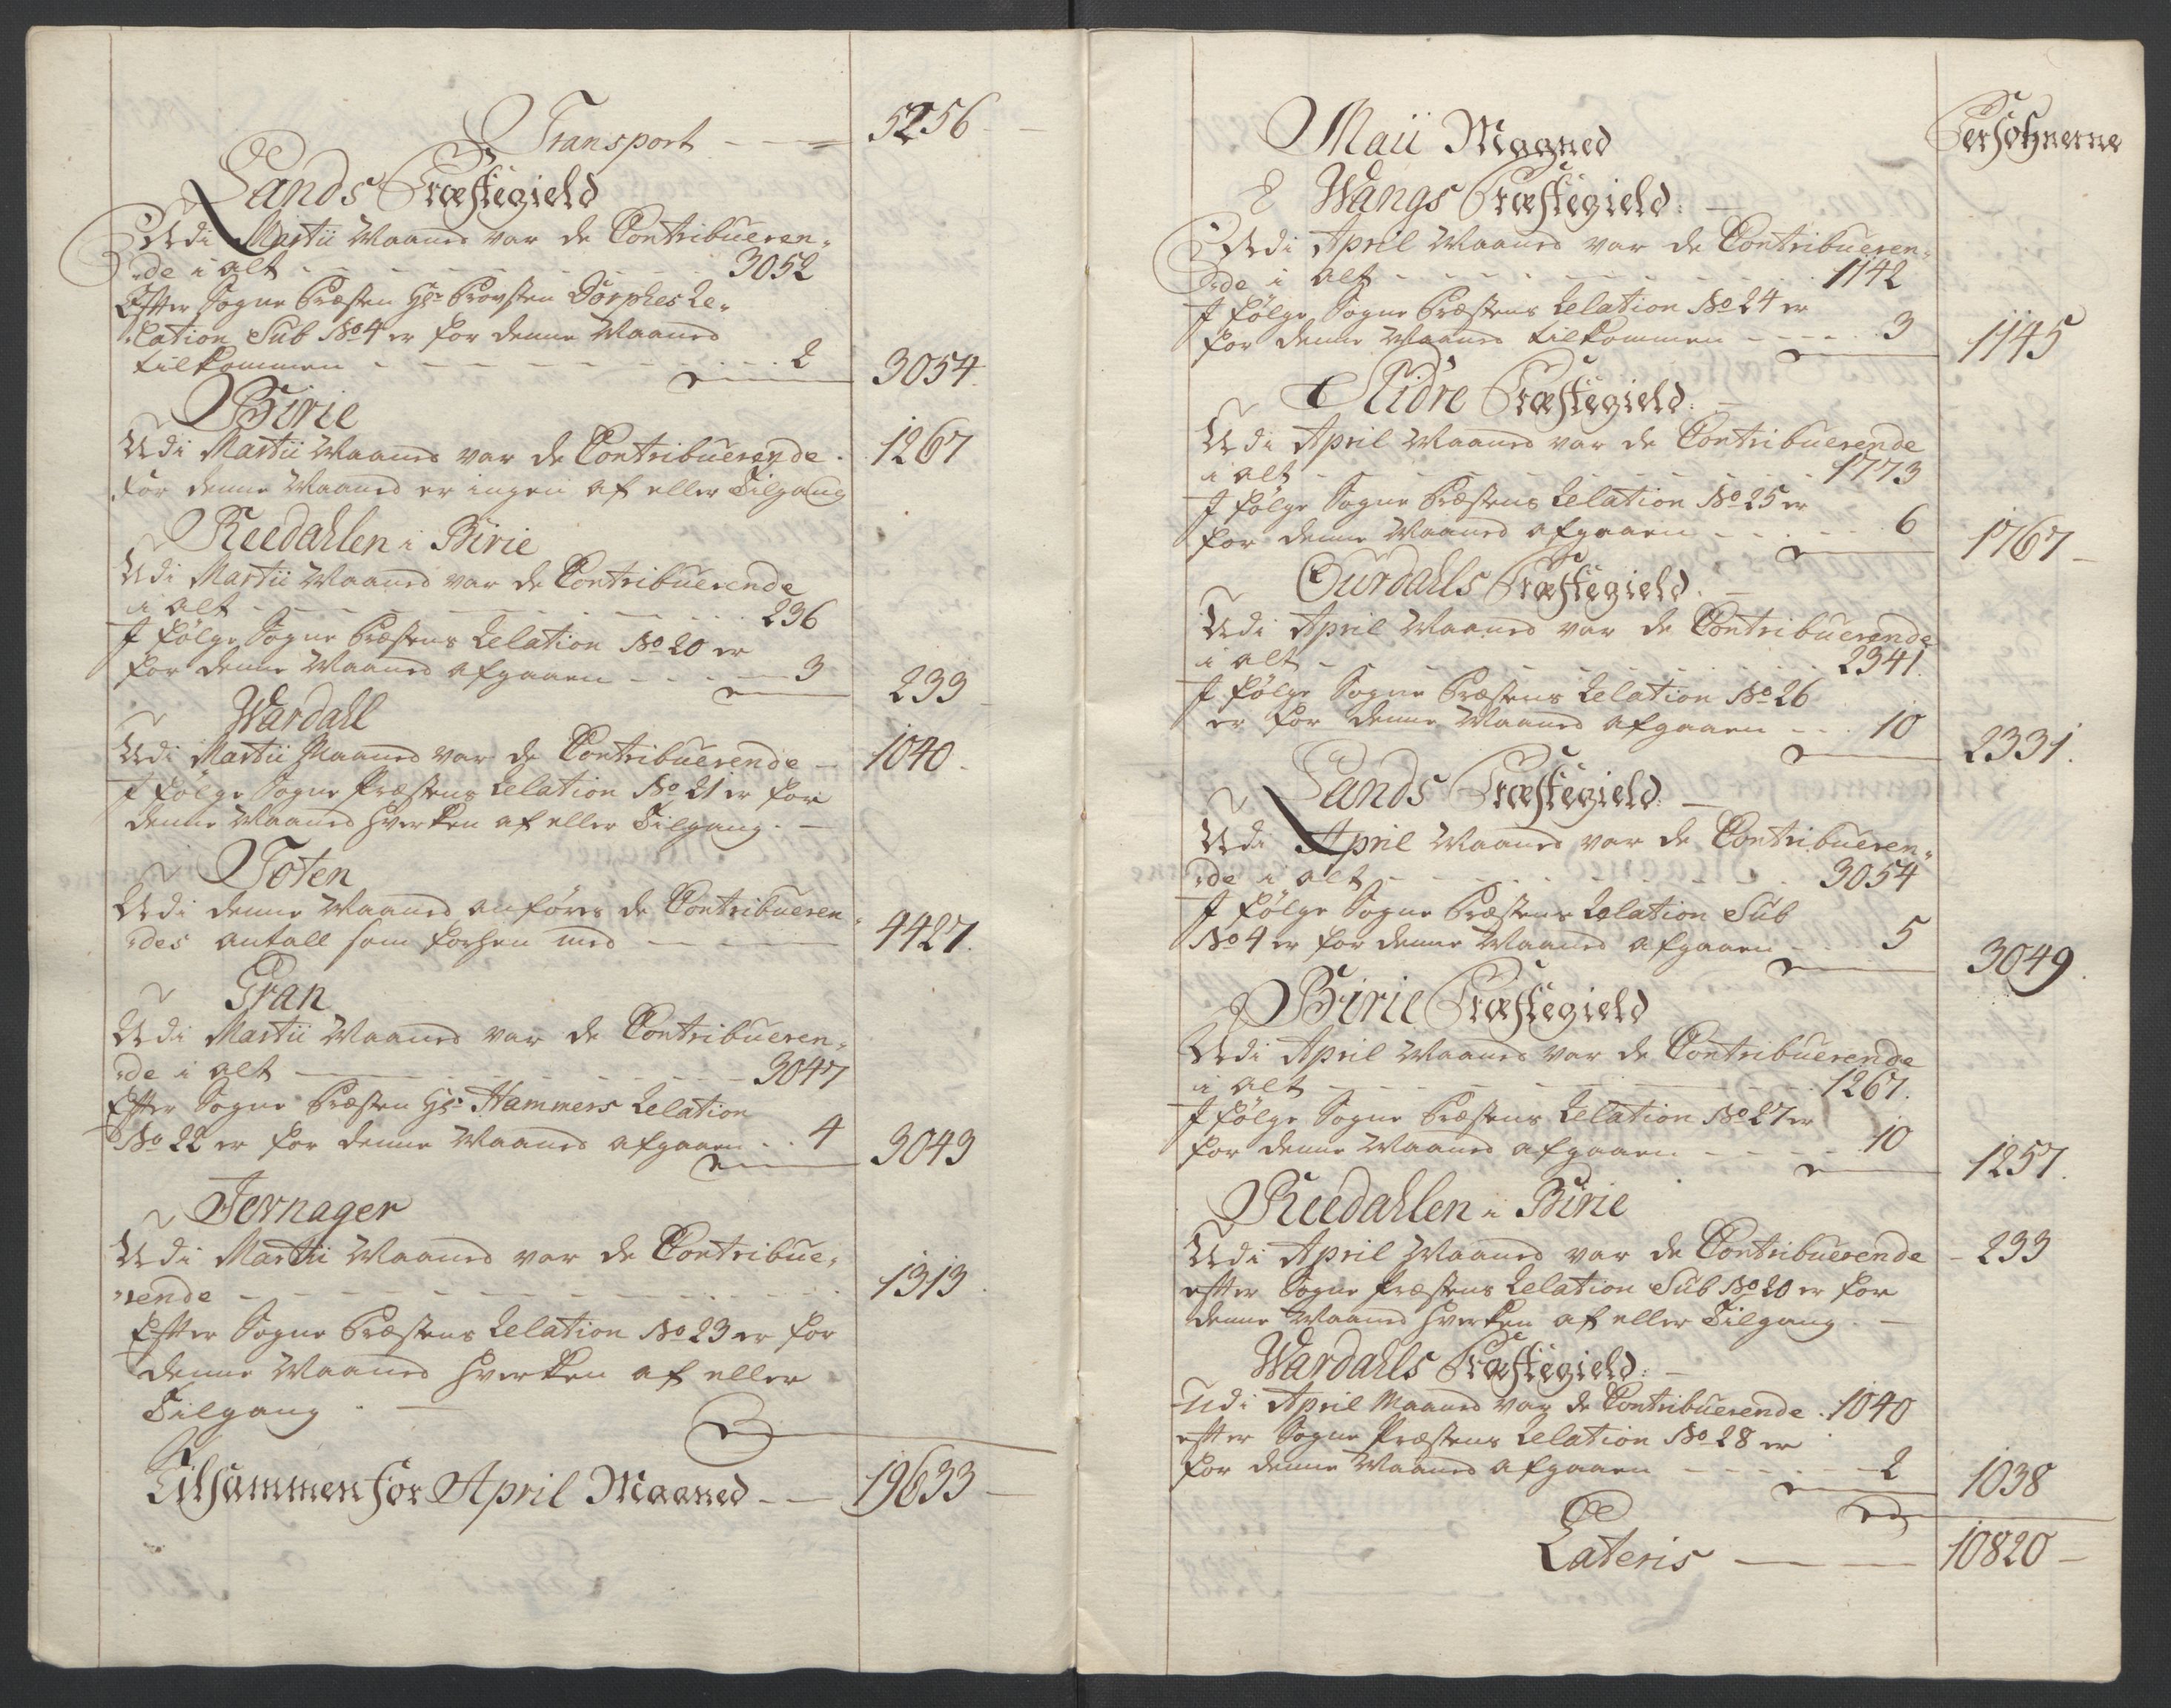 Transport - - - 5256
Lands Præstegield
Udi Martii Maaned var de Contribueren-
de i alt - - - 3052
Efter Sogne Præsten Hr. Provsten Dorphes Re-
lation Sub No 4 er for denne Maaned
tilkommen - - - 2 3054
Birie
Udi Martii Maaned var de Contribuerende 1267
for denne Maaned er ingen af eller Tilgang
Reedahlen i Birie
Udi Martii Maaned var de Contribuerende
i alt - - - 236
I følge Sogne Præstens Relation No 20 er
for denne Maaned afgaaen - - - 3 233
Wardahl
Udi Martii Maaned var de Contribuerende - 1040
I følge Sogne Præstens Relation No 21 er for
denne Maaned hverken af eller Tilgang.
Toten
Udi denne Maaned anføres de Contribueren-
des antall som forhen med - - - 4427.
Gran
Udi Martii Maaned var de Contribueren-
de i alt - - - 3047
Efter Sogne Præsten Hr. Hammers Relation
No 22 er for denne Maaned afgaaen - - 4 3043
Jevnager
Udi Martii Maaned var de Contribue-
rende - - - 1313
Efter Sogne Præstens Relation No 23 er for
denne Maaned hverken af eller
Tilgang.
Tilsammen for April Maaned - - 19633
Maii Maaned Persohnerne
Wangs Præstegield.
Udi April Maaned var de Contribueren-
de i alt - - - 1142
I følge Sogne Præstens Relation No 24 er
for denne Maaned tilkommen - - - 3 1145
Slidre Præstegield.
Udi April Maaned var de Contribuerende
i alt - - - 1773
I følge Sogne Præstens Relation No 25 er
for denne Maaned afgaaen - - - 6 1767
Ourdahls Præstegield.
Udi April Maaned var de Contribuerende
i alt - - - 2341.
I følge Sogne Præstens Relation No 26
er for denne Maaned afgaaen - - 10 2331.
Lands Præstegield.
Udi April Maaned var de Contribueren-
de i alt - - - 3054
I følge Sogne Præstens Relation Sub
No 4 er for denne Maaned afgaaen - - 5 3049.
Birie Præstegield
Udi April Maaned var de Contribuerende
i alt - - - 1267.
I følge Sogne Præstens Relation No 27 er
for denne Maaned afgaaen - - - 10 1257.
Reedahlen i Birie
Udi April Maaned var de Contribuerende - 233
efter Sogne Præstens Relation Sub No 20 er for
denne Maaned hverken af eller Tilgang.
Wardahls Præstegield.
Udi April Maaned var de Contribuerende . 1040
efter Sogne Præstens Relation No 28 er
for denne Maaned afgaaen - - - 2 1038
Lateris - - - 10820